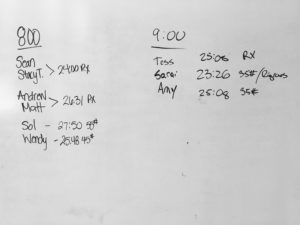 800
Sean
Stacy T. > 24:00 RX
Andrew
Matt > 26:31 RX
Sol - 27:50 55#
Wendy - 25:48 45#
9:00
Tess 25:06 RX
Sarai 23:26 35#/
Amy 25:08 35#